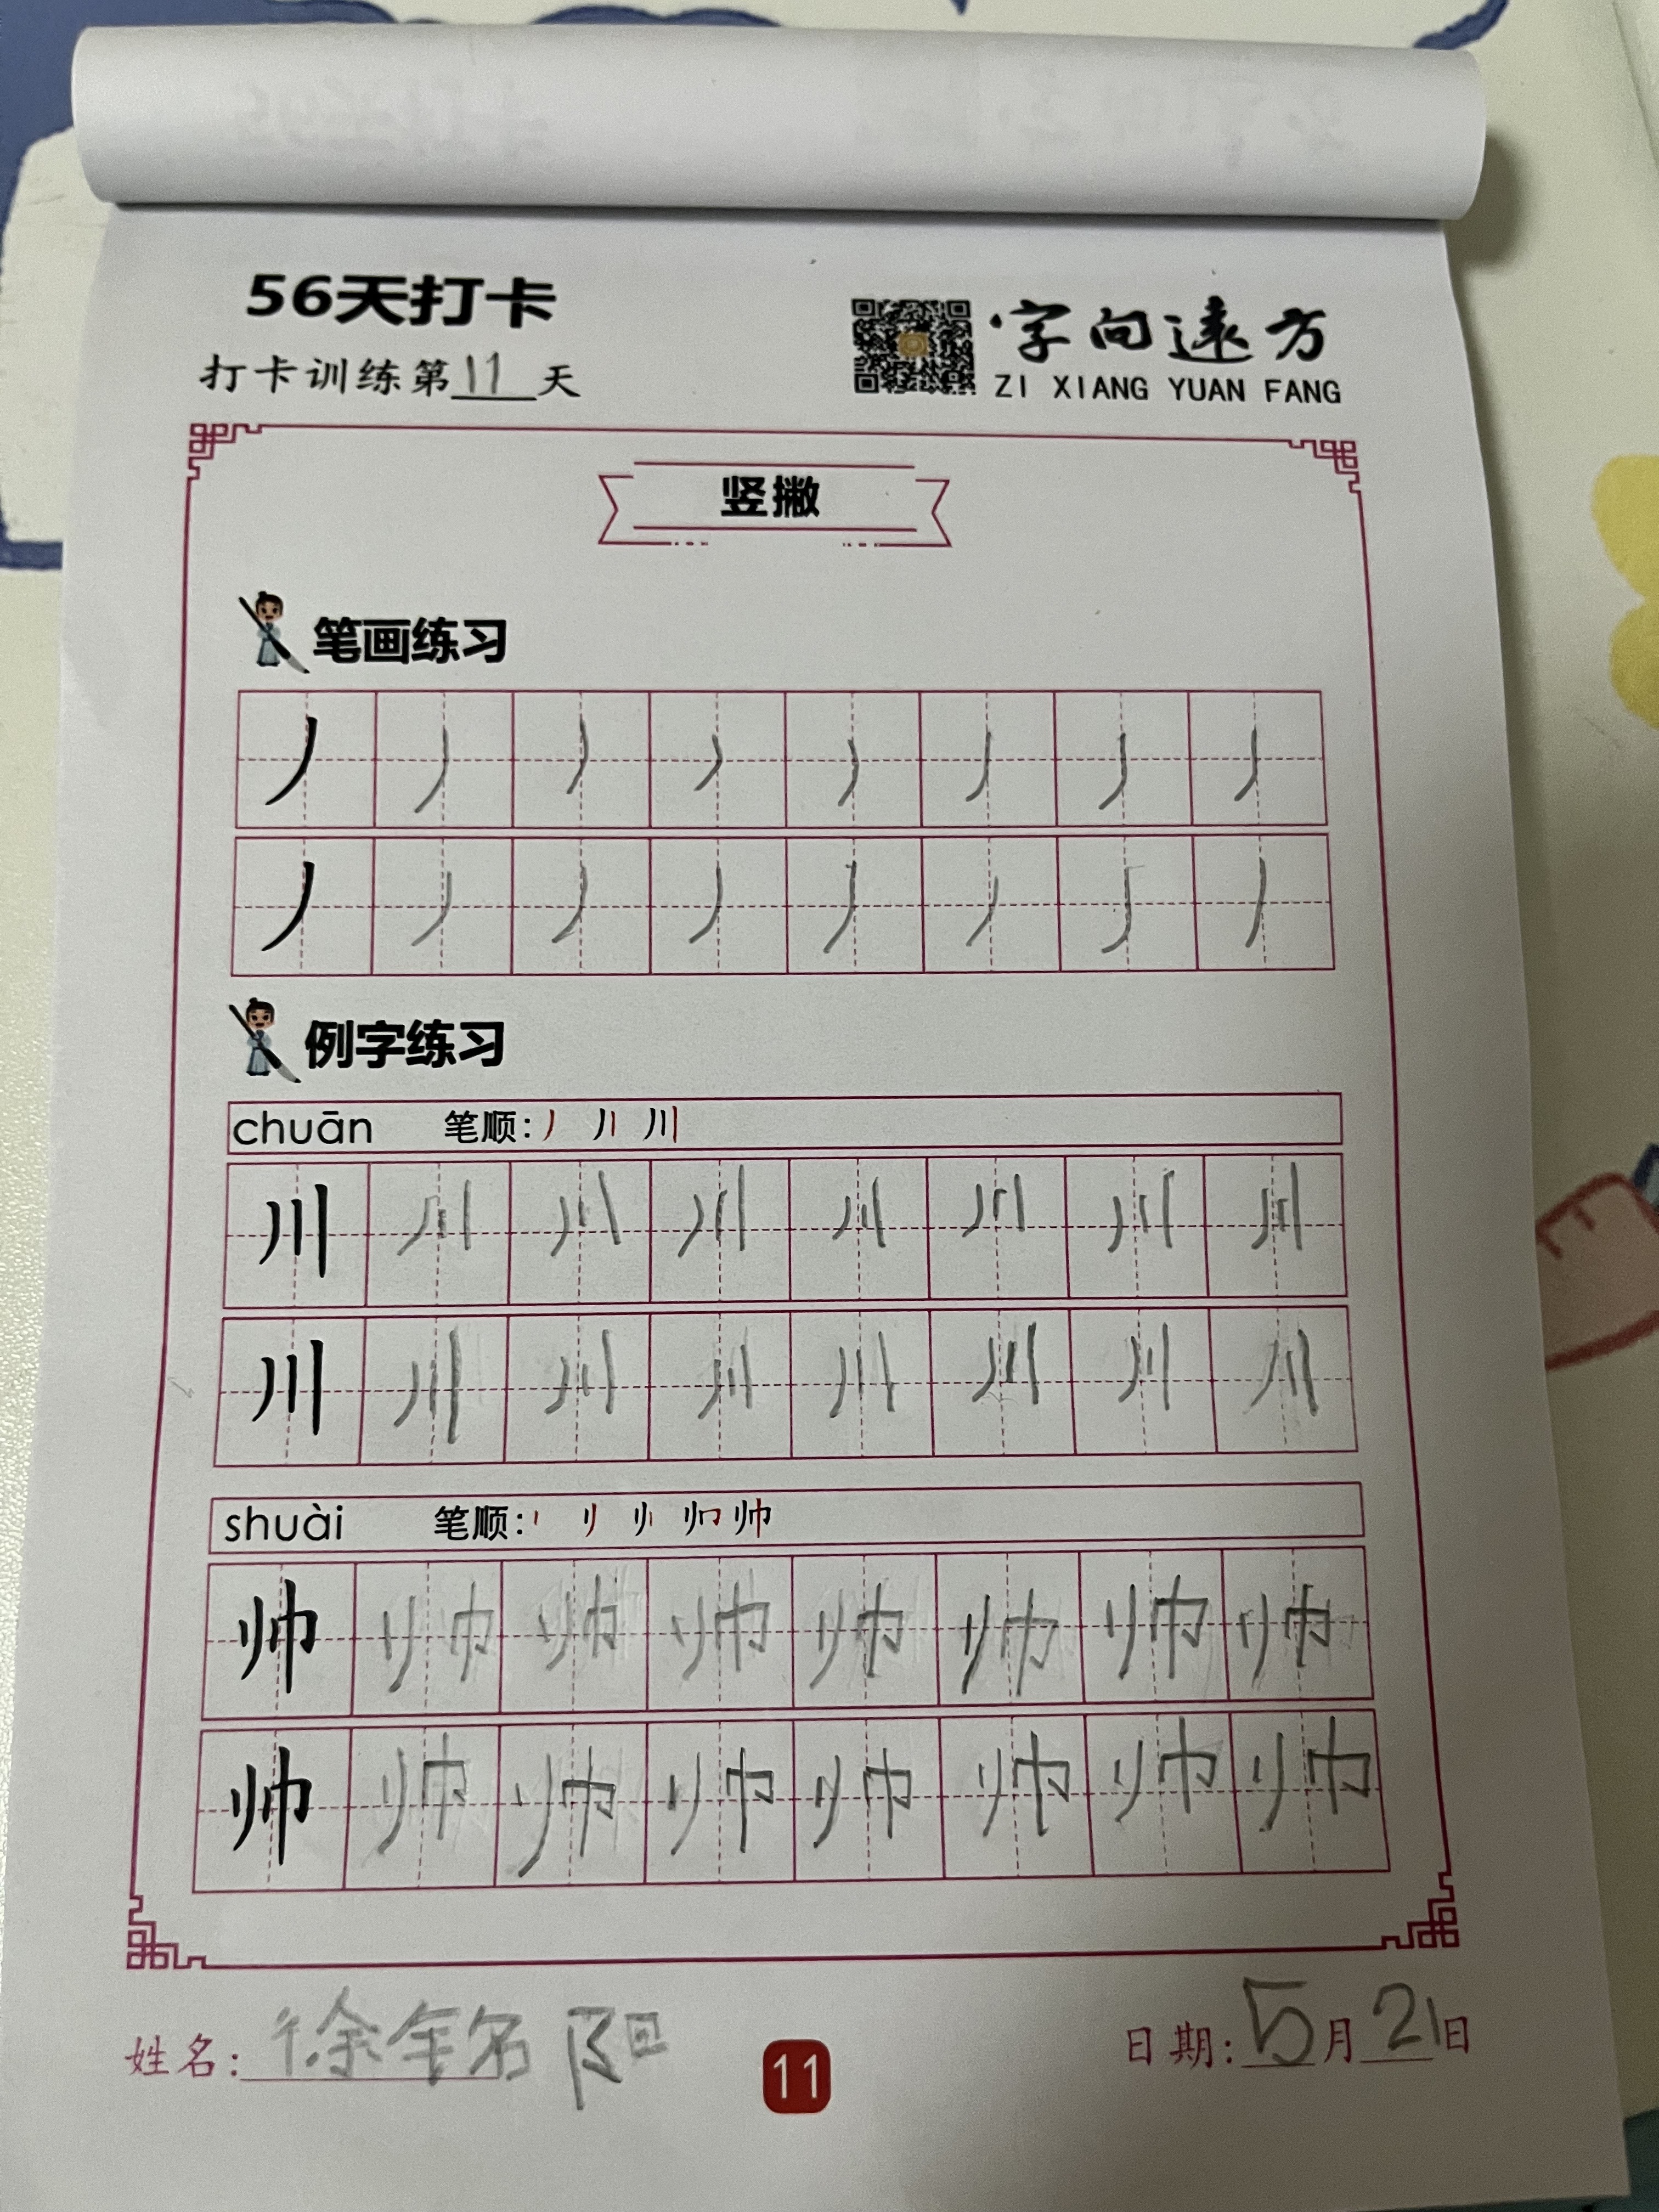 56天打卡
字向远方
打卡训练第11天
ZI XIANG YUAN FANG
竖撇
笔画练习
丿 丿 丿 丿 丿 丿 丿 丿
丿 丿 丿 丿 丿 丿 丿 丿
例字练习
chuān 笔顺: 丿 丿丨 川
川 川 川 川 川 川 川 川
川 川 川 川 川 川 川 川
shuài 笔顺: 帅
帅 帅 帅 帅 帅 帅 帅 帅
帅 帅 帅 帅 帅 帅 帅 帅
姓名: 徐铭阳
日期: 5月21日
11